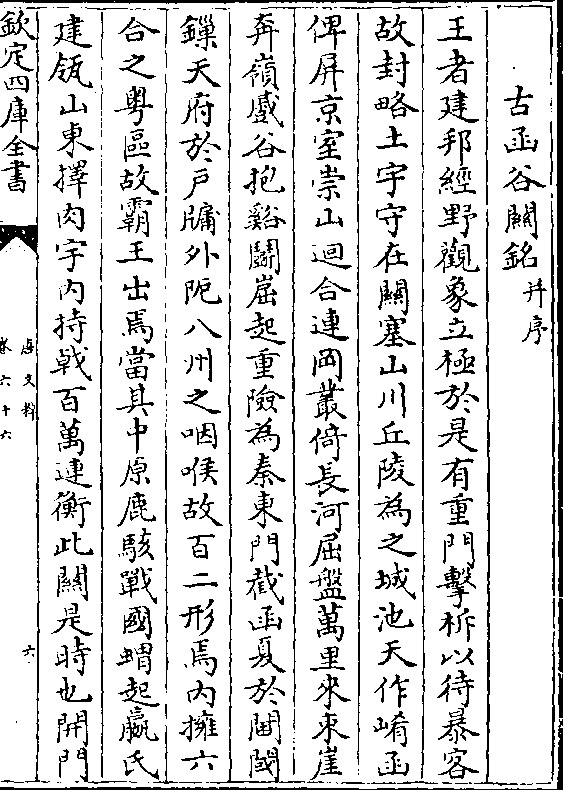 古函谷關銘 并序
王者建邦經野觀象立極於是有重門擊柝以待暴客
故封略土宇守在關塞山川丘陵為之城池天作崤函
俾屏京室崇山迴合連岡叢倚長河屈盤萬里來束崖
奔嶺蹙谷抱谿鬭崫起重險為秦東門截函夏於閫閾
鏁天府於戸牖外阨八州之咽喉故百二形焉内擁六
合之粵區故霸王出焉當其中原鹿駭戰國蝟起嬴氏
建瓴山東擇肉宇内持㦸百萬連衡此關是時也開門
欽定四庫全書
唐文粹
卷六十六
六